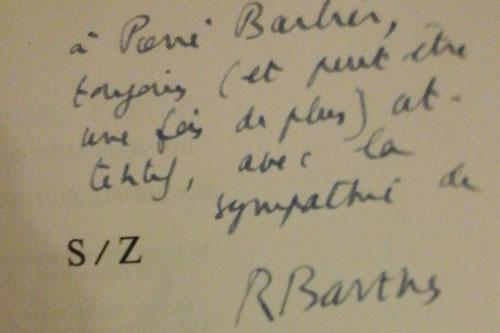 à Pierre Barbier,
toujours (et peut être
une fois de plus) at-
tentif, avec la
sympathie de
S/Z
RBarthes